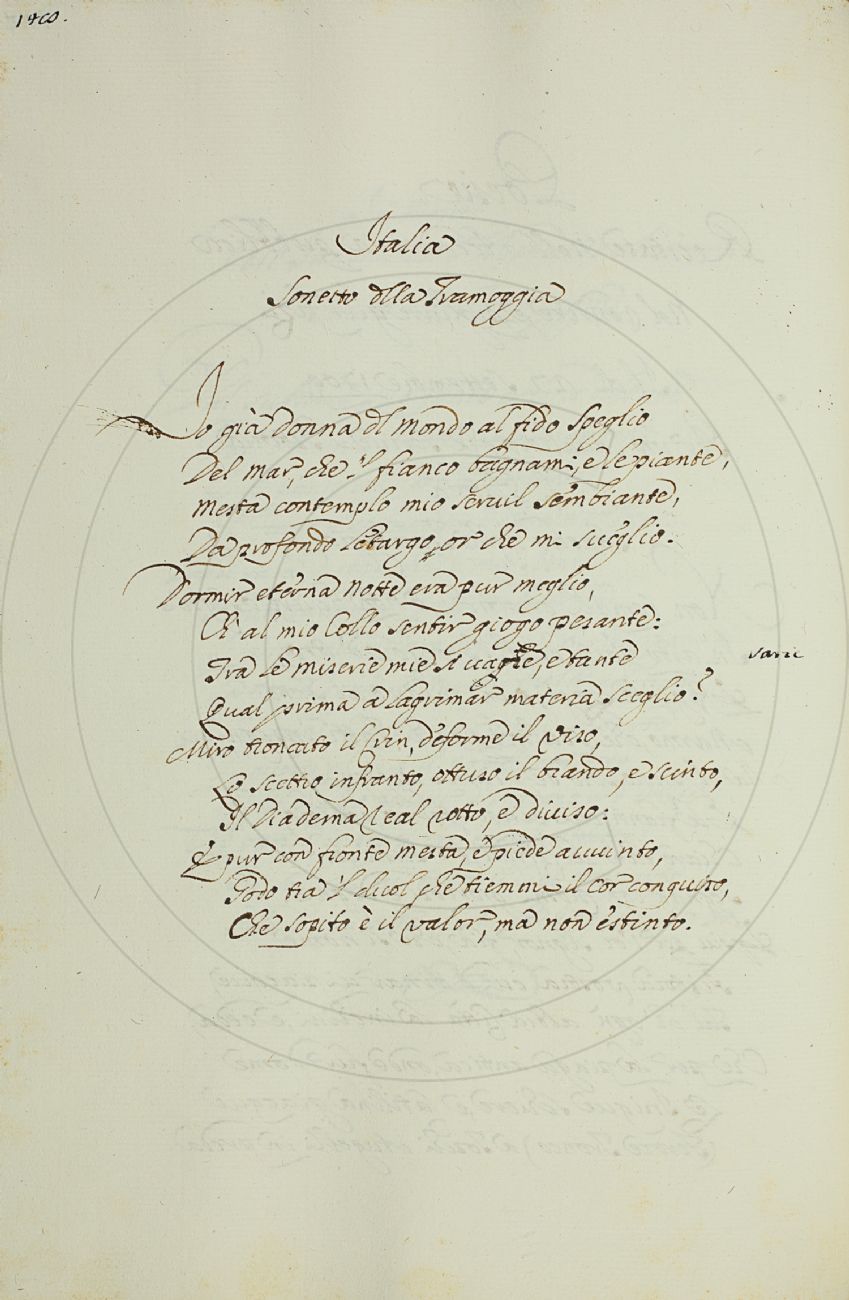 1400.
Italia
Sonetto dlla Tramoggia
Io già donna dl mondo al fido speglio
Del mar, che 'l fianco bagnami, e le piante,
Mesta contemplo mio servil sembiante,
Da profondo letargo, or che mi sveglio.
Dormir eterna notte era pur meglio,
Ch' al mio Collo sentir giogo pesante:
Tra le miserie mie sì vaghe, e tante
varie
Qual prima a lagrimar materia sceglio?
Miro troncato il crin, deforme il viso,
Lo scettro infranto, ottuso il brando, e scinto,
Il Diadema real rotto, e diviso:
E pur con fronte mesta, e piede avvinto,
Godo tra 'l duol che tiemmi il cor conquiso,
Che sopito è il valor, ma non estinto.